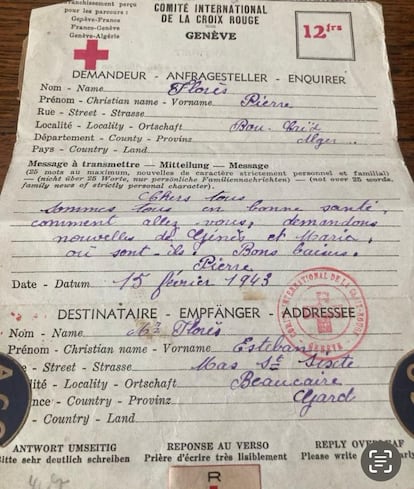 franchissement perçu
pour les parcours :
Genève-France
France-Genève
Genève-Algérie
COMITÉ INTERNATIONAL
DE LA CROIX ROUGE
GENÈVE
12frs
DEMANDEUR - ANFRAGESTELLER - ENQUIRER
Nom - Name Florès
Prénom - Christian name - Vorname Pierre
Rue - Street - Strasse
Localité - Locality - Ortschaft Bou
Département - County - Provinz Alger
Pays - Country - Land
Message à transmettre — Mitteilung — Message
(25 mots au maximum, nouvelles de caractère strictement personnel et familial)
— (nicht über 25 Worte, nur persönliche Familiennachrichten) — (not over 25 words,
family news of strictly personal character).
Chers tous
Sommes tous en bonne santé,
comment allez vous, demandons
nouvelles de Génès et Marie,
où sont-ils. Bons baisers.
Pierre
Date - Datum 15 février 1943
COMITÉ INTERNATIONAL DE LA CROIX-ROUGE
GENÈVE
DESTINATAIRE - EMPFÄNGER - ADDRESSEE
Nom - Name Mr Florès
Prénom - Christian name - Vorname Esteban
e - Street - Strasse Mas St Sixte
lité - Locality - Ortschaft Beaucaire
nce - County - Provinz Gard
- Country - Land
ANTWORT UMSEITIG
Bitte sehr deutlich schreiben
REPONSE AU VERSO
Prière d'écrire très lisiblement
REPLY OVERLEAF
Please write
R